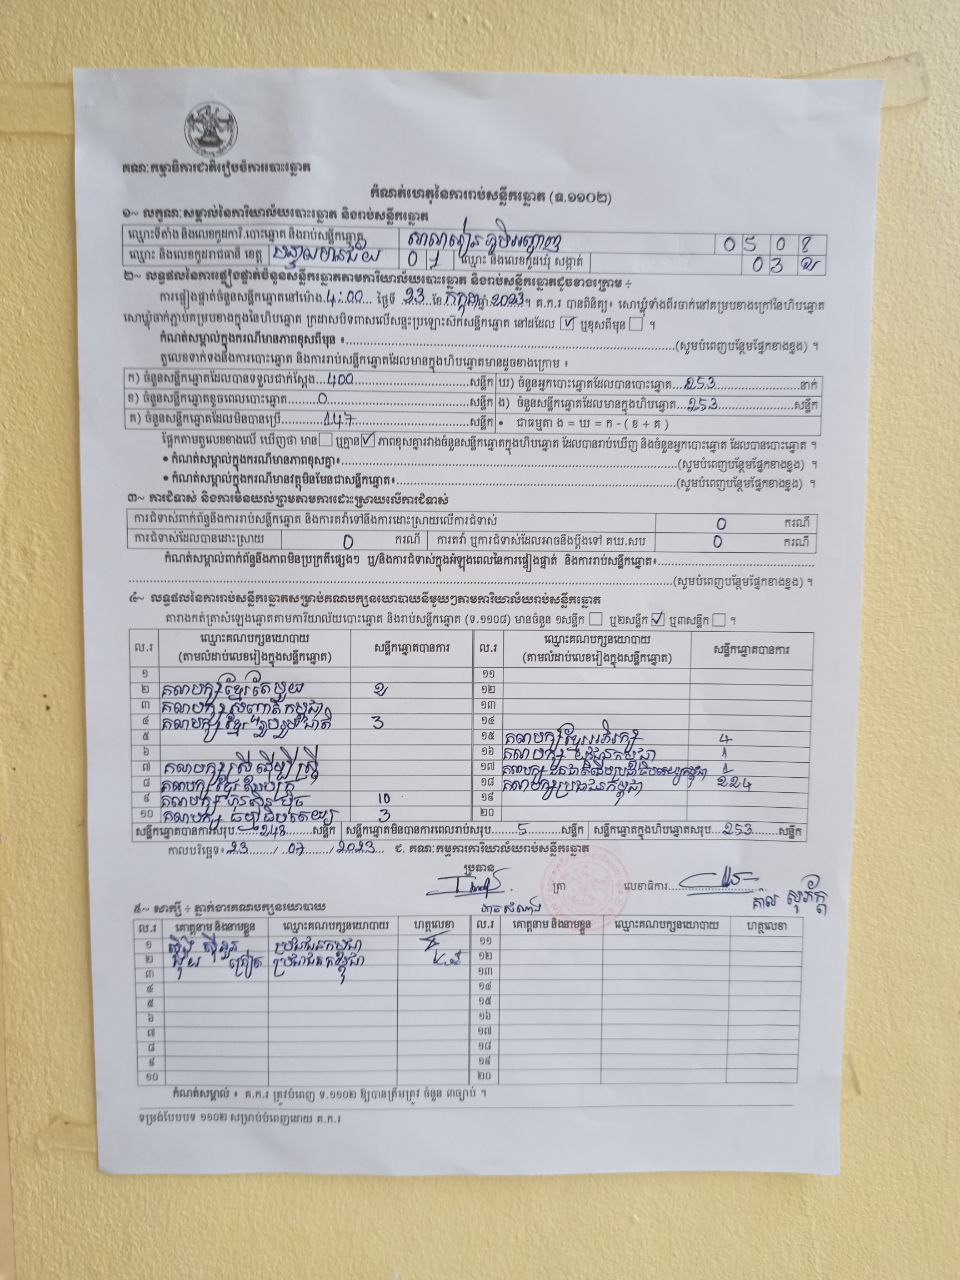 គណៈកម្មាធិការជាតិរៀបចំការបោះឆ្នោត
កំណត់ហេតុនៃការរាប់សន្លឹកឆ្នោត (ទ.១១០២)
១~ លក្ខណៈសម្គាល់នៃការិយាល័យបោះឆ្នោត និងរាប់សន្លឹកឆ្នោត
ឈ្មោះទីតាំង និងលេខកូដការិ.បោះឆ្នោត និងរាប់សន្លឹកឆ្នោត សាលារៀន
ឈ្មោះ និងលេខកូដរាជធានី ខេត្ត បន្ទាយមានជ័យ 01 ឈ្មោះ និងលេខកូដឃុំ សង្កាត់
២~ លទ្ធផលនៃការផ្ទៀងផ្ទាត់ចំនួនសន្លឹកឆ្នោតតាមការិយាល័យបោះឆ្នោត និងរាប់សន្លឹកឆ្នោតដូចខាងក្រោម ÷
ការផ្ទៀងផ្ទាត់ចំនួនសន្លឹកឆ្នោតនៅម៉ោង 4:00 ថ្ងៃទី 23 ខែ កក្កដា ឆ្នាំ 2023 ។ គ.ក.រ បានពិនិត្យ៖ សោឃ្លុំទាំងពីរចាក់នៅគម្របខាងក្រៅនៃហិបឆ្នោត
សោឃ្លុំចាក់ភ្ជាប់គម្របខាងក្នុងនៃហិបឆ្នោត ក្រដាសបិទពាសលើសន្ទះប្រឡោះស៊កសន្លឹកឆ្នោត នៅដដែល ☑ ឬខុសពីមុន ☐ ។
កំណត់សម្គាល់ក្នុងករណីមានភាពខុសពីមុន ៖ (សូមបំពេញបន្ថែមផ្នែកខាងខ្នង) ។
តួលេខទាក់ទងនឹងការបោះឆ្នោត និងការរាប់សន្លឹកឆ្នោតដែលមានក្នុងហិបឆ្នោតមានដូចខាងក្រោម ៖
ក) ចំនួនសន្លឹកឆ្នោតដែលបានទទួលជាក់ស្តែង 400 សន្លឹក ឃ) ចំនួនអ្នកបោះឆ្នោតដែលបានបោះឆ្នោត 253 នាក់
ខ) ចំនួនសន្លឹកឆ្នោតខូចពេលបោះឆ្នោត 0 សន្លឹក ង) ចំនួនសន្លឹកឆ្នោតដែលមានក្នុងហិបឆ្នោត 253 សន្លឹក
គ) ចំនួនសន្លឹកឆ្នោតដែលមិនបានប្រើ 147 សន្លឹក • ជាធម្មតា ង = ឃ = ក - ( ខ + គ )
ផ្អែកតាមតួលេខខាងលើ ឃើញថា មាន ☐ ឬគ្មាន ☑ ភាពខុសគ្នារវាងចំនួនសន្លឹកឆ្នោតក្នុងហិបឆ្នោត ដែលបានរាប់ឃើញ និងចំនួនអ្នកបោះឆ្នោត ដែលបានបោះឆ្នោត ។
• កំណត់សម្គាល់ក្នុងករណីមានភាពខុសគ្នា៖ (សូមបំពេញបន្ថែមផ្នែកខាងខ្នង) ។
• កំណត់សម្គាល់ក្នុងករណីមានវត្ថុមិនមែនជាសន្លឹកឆ្នោត៖ (សូមបំពេញបន្ថែមផ្នែកខាងខ្នង) ។
៣~ ការជំទាស់ និងការមិនយល់ព្រមតាមការដោះស្រាយលើការជំទាស់
ការជំទាស់ពាក់ព័ន្ធនឹងការរាប់សន្លឹកឆ្នោត និងការតវ៉ាទៅនឹងការដោះស្រាយលើការជំទាស់ 0 ករណី
ការជំទាស់ដែលបានដោះស្រាយ 0 ករណី ការតវ៉ា ឬការជំទាស់ដែលអាចនឹងប្តឹងទៅ គឃ.សប 0 ករណី
កំណត់សម្គាល់ពាក់ព័ន្ធនឹងភាពមិនប្រក្រតីផ្សេងៗ ឬ/និងការជំទាស់ក្នុងអំឡុងពេលនៃការផ្ទៀងផ្ទាត់ និងការរាប់សន្លឹកឆ្នោត៖
(សូមបំពេញបន្ថែមផ្នែកខាងខ្នង) ។
៤~ លទ្ធផលនៃការរាប់សន្លឹកឆ្នោតសម្រាប់គណបក្សនយោបាយនីមួយៗតាមការិយាល័យរាប់សន្លឹកឆ្នោត
តារាងកត់ត្រាសំឡេងឆ្នោតតាមការិយាល័យបោះឆ្នោត និងរាប់សន្លឹកឆ្នោត (ទ.១១០៨) មានចំនួន ១សន្លឹក ☐ ឬ២សន្លឹក ☑ ឬ៣សន្លឹក ☐ ។
ល.រ ឈ្មោះគណបក្សនយោបាយ (តាមលំដាប់លេខរៀងក្នុងសន្លឹកឆ្នោត) សន្លឹកឆ្នោតបានការ ល.រ ឈ្មោះគណបក្សនយោបាយ (តាមលំដាប់លេខរៀងក្នុងសន្លឹកឆ្នោត) សន្លឹកឆ្នោតបានការ
១ ១១
២ គណបក្សខ្មែរតែមួយ ១២
៣ ១៣
៤ គណបក្សខ្មែររួបរួមជាតិ 3 ១៤
៥ ១៥ គណបក្សខ្មែរអភិរក្ស 4
៦ ១៦ គណបក្សយុវជនកម្ពុជា 1
៧ គណបក្សស្រីដើម្បីស្ត្រី ១៧ 1
៨ ១៨ គណបក្សប្រជាជនកម្ពុជា 224
៩ គណបក្សហ្វ៊ុនស៊ិនប៉ិច 10 ១៩
១០ គណបក្សធម្មាធិបតេយ្យ 3 ២០
សន្លឹកឆ្នោតបានការសរុប 248 សន្លឹក សន្លឹកឆ្នោតមិនបានការពេលរាប់សរុប 5 សន្លឹក សន្លឹកឆ្នោតក្នុងហិបឆ្នោតសរុប 253 សន្លឹក
កាលបរិច្ឆេទ៖ 23 / 07 / 2023 ជ. គណៈកម្មការការិយាល័យរាប់សន្លឹកឆ្នោត
ប្រធាន
ត្រា លេខាធិការ
៥~ សាក្សី ÷ ភ្នាក់ងារគណបក្សនយោបាយ
ល.រ គោត្តនាម និងនាមខ្លួន ឈ្មោះគណបក្សនយោបាយ ហត្ថលេខា ល.រ គោត្តនាម និងនាមខ្លួន ឈ្មោះគណបក្សនយោបាយ ហត្ថលេខា
១ ប្រជាជនកម្ពុជា ១១
២ ប្រជាជនកម្ពុជា ១២
៣ ១៣
៤ ១៤
៥ ១៥
៦ ១៦
៧ ១៧
៨ ១៨
៩ ១៩
១០ ២០
កំណត់សម្គាល់ ៖ គ.ក.រ ត្រូវបំពេញ ទ.១១០២ ឱ្យបានត្រឹមត្រូវ ចំនួន ៣ច្បាប់ ។
ទម្រង់បែបបទ ១១០២ សម្រាប់បំពេញដោយ គ.ក.រ